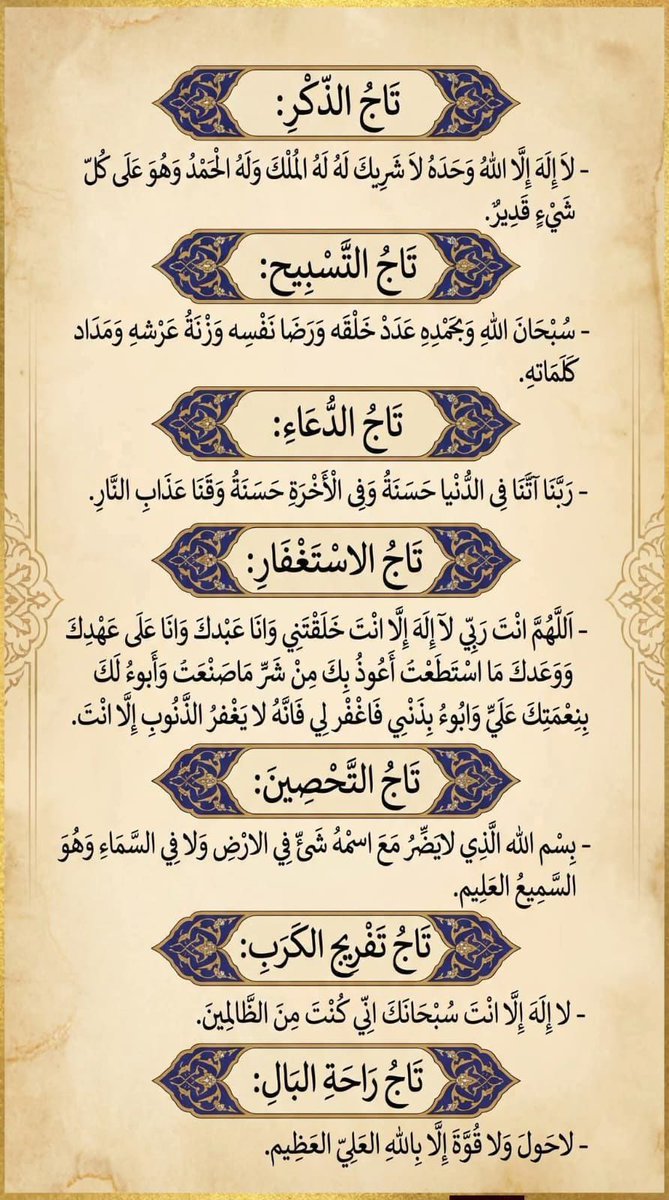 تَاجُ الذِّكْرِ:
- لاَ إِلَهَ إِلَّا اللهُ وَحَدَهُ لاَ شَرِيكَ لَهُ لَهُ المُلْكَ وَلَهُ الْحَمْدُ وَهُوَ عَلَى كُلّ
شَيْءٍ قَدِيرٌ.
تَاجُ التَّسْبِيح:
- سُبْحَانَ اللهِ وَبِحَمْدِهِ عَدَدْ خَلْقَه وَرَضَا نَفْسِه وَزْنَةُ عَرْشهِ وَمَدَاد
كَلَمَاتهِ.
تَاجُ الدُّعَاءِ:
- رَبَّنَا آتَّنَا فِى الدُّنْيا حَسَنَةُ وَفِى الْأَخْرَةِ حَسَنَةُ وَقَنَا عَذَابِ النَّارِ.
تَاجُ الاسْتَغْفَارِ:
- اَللَّهُمَّ انْتَ رَبِّي لآ إِلَهَ إِلَّا انْتَ خَلَقْتَنِي وَانَا عَبْدكَ وَانَا عَلَى عَهْدِكَ
وَوَعَدكَ مَا اسْتَطَعْتَ أَعُوذُ بِكَ مِنْ شَرِّ مَاصَنْعَتَ وَأَبوءُ لَكَ
بِنِعْمَتِكَ عَلَيَّ وَابُوءُ بِذَنْبِي فَاغْفْر لِي فَانَّهُ لا يَغْفرُ الذَّنُوبِ إِلَّا انْتَ.
تَاجُ التَّحْصِينَ:
- بِسْم الله الَّذِي لايَضِّرُ مَعَ اسمْهُ شَئّ فِي الارْضِ وَلا فِي السَّمَاءِ وَهُوَ
السَّمِيعُ العَلِيم.
تَاجُ تَفْرِيج الكَرَبِ:
- لا إِلَهَ إِلَّا انْتَ سُبْحَانَكَ انِّي كُنْتَ مِنَ الظَّالِمِينَ.
تَاجُ رَاحَةِ البَالِ:
- لاحَولَ وَلا قُوَّةَ إِلَّا بِاللهِ العَلِيّ العَظِيم.